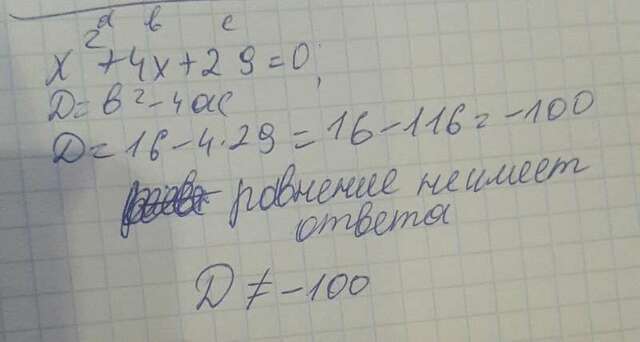 a в c
x²+4x+29=0;
D=в²-4ac
D=16-4·29=16-116=-100
ровнение неимеет
ответа
D≠-100